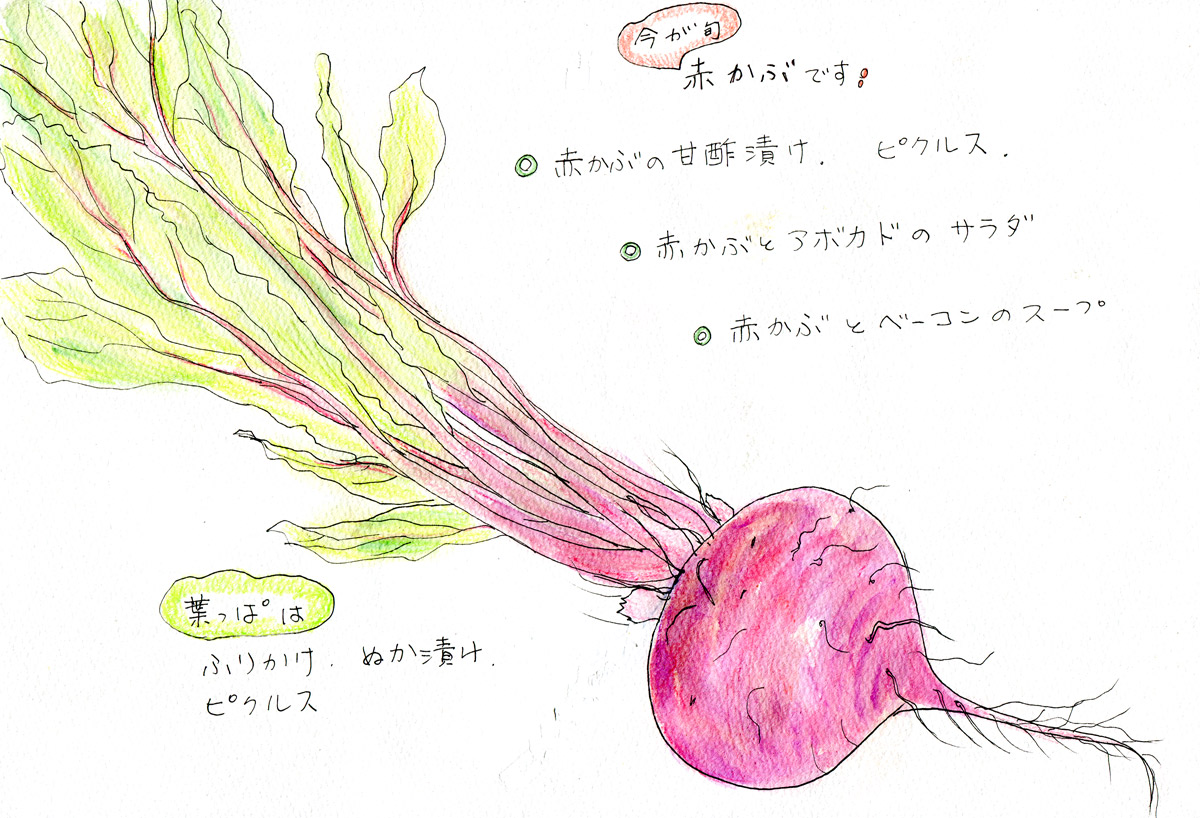 今が旬
赤かぶです!
◎ 赤かぶの甘酢漬け. ピクルス.
◎ 赤かぶとアボカドのサラダ
◎ 赤かぶとベーコンのスープ
葉っぱは
ふりかけ. ぬか漬け.
ピクルス